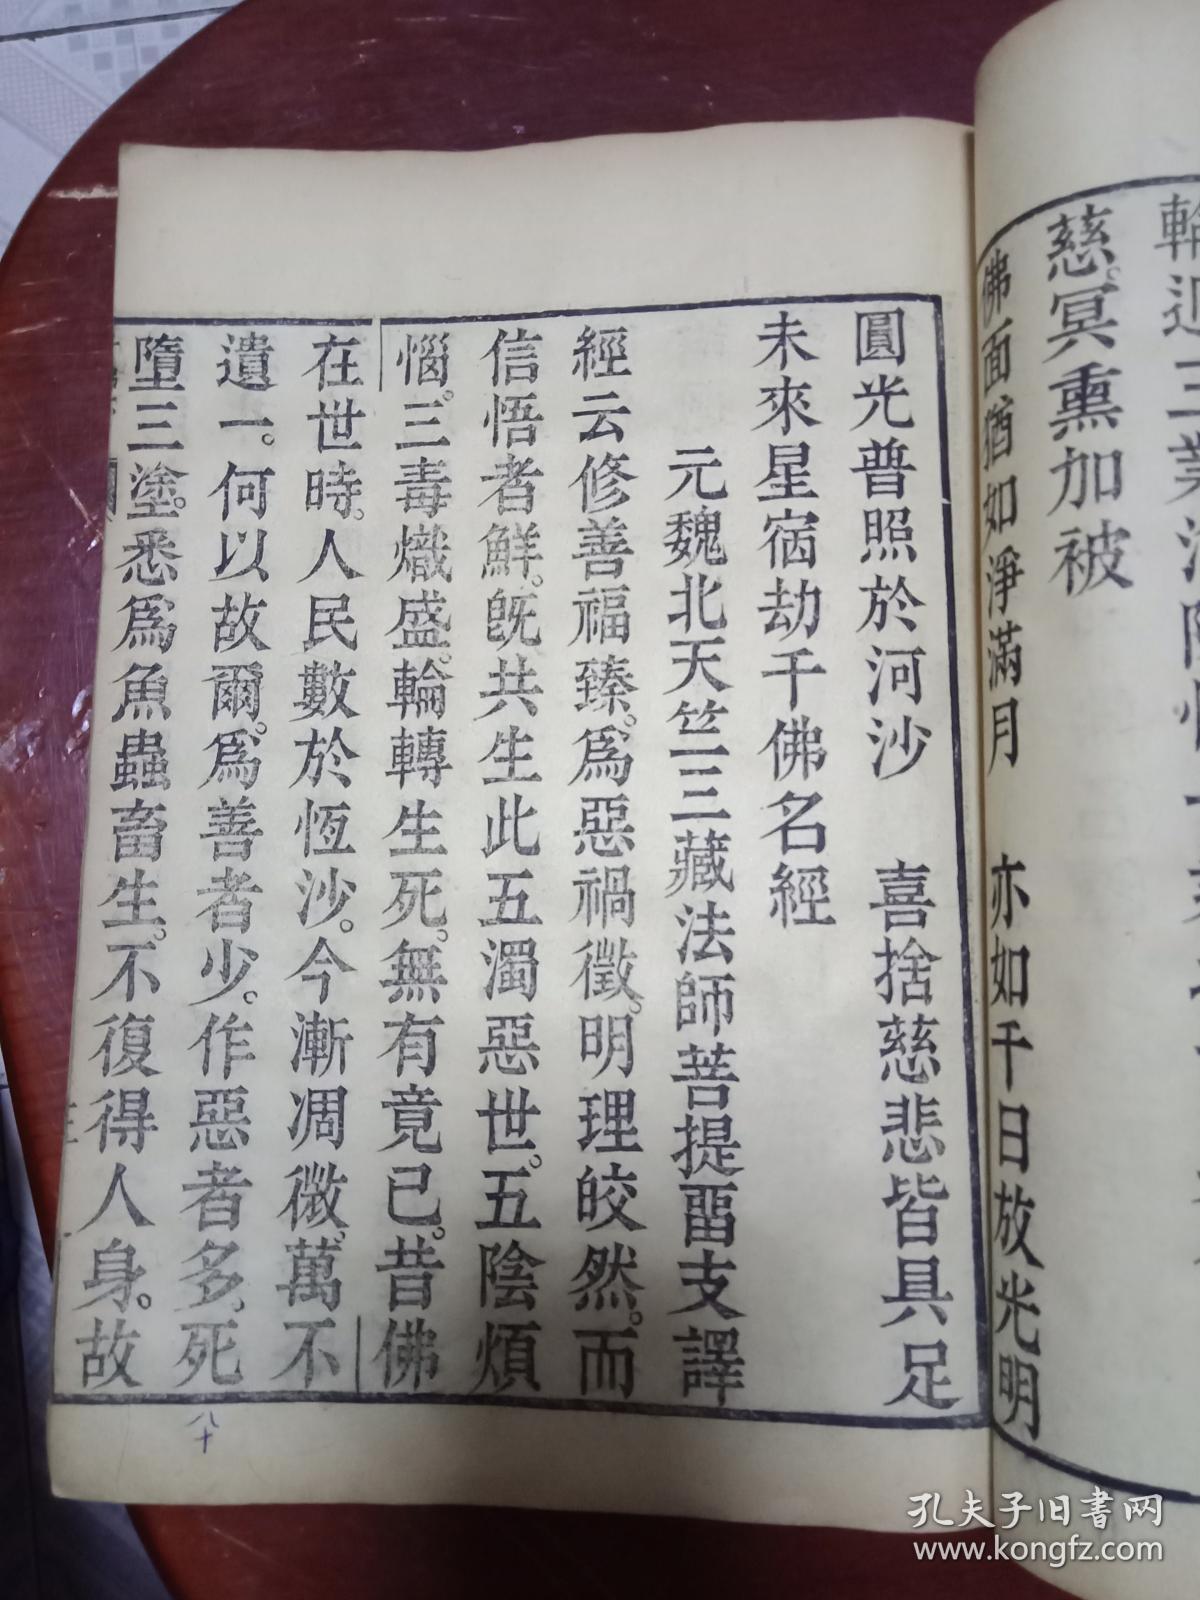 慈。冥熏加被
佛面猶如淨滿月　亦如千日放光明
圓光普照於河沙　喜捨慈悲皆具足
未來星宿劫千佛名經
元魏北天竺三藏法師菩提畱支譯
經云修善福臻。爲惡禍徵。明理皎然。而
信悟者鮮。旣共生此五濁惡世。五陰煩
惱。三毒熾盛。輪轉生死。無有竟已。昔佛
在世時。人民數於恆沙。今漸凋微。萬不
遺一。何以故爾。爲善者少。作惡者多。死
墮三塗。悉爲魚蟲畜生。不復得人身。故
八十
孔夫子旧书网
www.kongfz.com